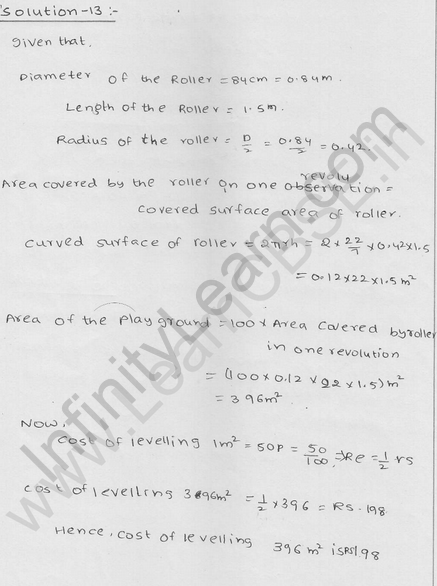 Solution-13:-
Given that.
Diameter of the Roller = 84cm = 0.84m.
Length of the Roller = 1.5m.
Radius of the roller = D/2 = 0.84/2 = 0.42.
revolu
Area covered by the roller on one observation =
covered surface area of roller.
curved surface of roller = 2πrh = 2 × 22/7 × 0.42 × 1.5
= 0.12 × 22 × 1.5 m²
Area of the play ground = 100 × Area covered by roller
in one revolution
= (100 × 0.12 × 22 × 1.5) m²
= 396 m².
Now,
cost of levelling 1m² = 50P = 50/100 ⇒ Re = 1/2 rs
cost of levelling 396m² = 1/2 × 396 = Rs. 198
Hence, cost of levelling 396 m² is Rs 198
InfinityLearn.com
www.LearnCBSE.in